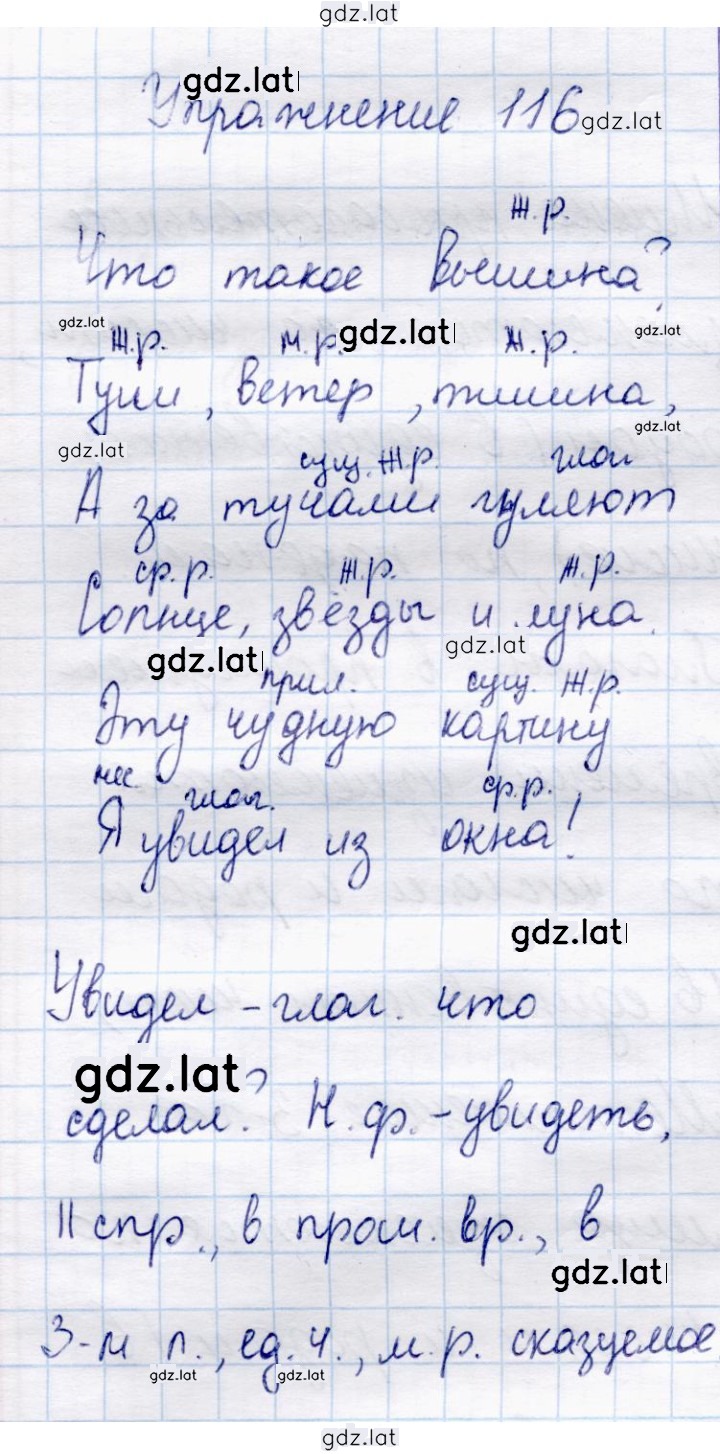 gdz.lat
gdz.lat
Упражнение 116 gdz.lat
ж.р.
Что такое вышина?
gdz.lat ж.р. м.р. gdz.lat ж.р. gdz.lat
Тучи, ветер, тишина,
gdz.lat
gdz.lat сущ. ж.р. глаг.
А за тучами гуляют
ср.р. ж.р. ж.р.
Солнце, звёзды и луна.
gdz.lat gdz.lat
прил. сущ. ж.р.
Эту чудную картину
мес. глаг. ср.р.
Я увидел из окна!
gdz.lat
Увидел – глаг. что
gdz.lat
сделал? Н.ф. – увидеть,
II спр., в прош. вр., в
gdz.lat
3-м л., ед.ч., м.р. сказуемое
gdz.lat gdz.lat
gdz.lat